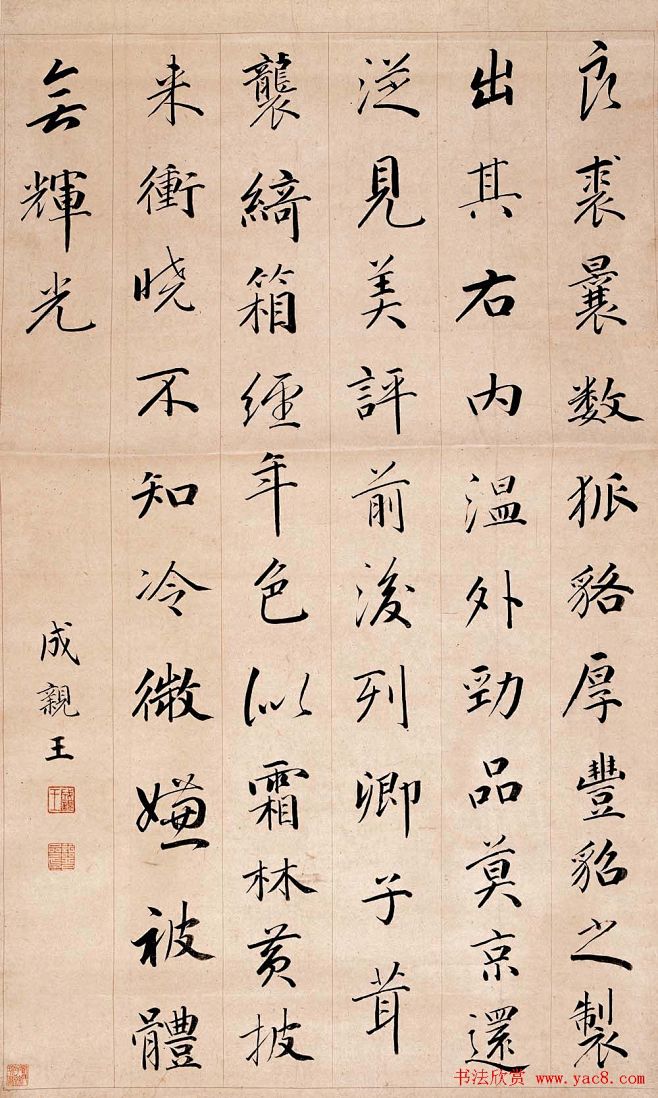 良裘曩数狐貉厚豐貂之製
出其右内温外勁品莫京還
從見美評前後列卿子茸
襲綺箱經年色似霜林黄披
来衝暁不知冷微嫌被體
無輝光
成親王
书法欣赏 www.yac8.com